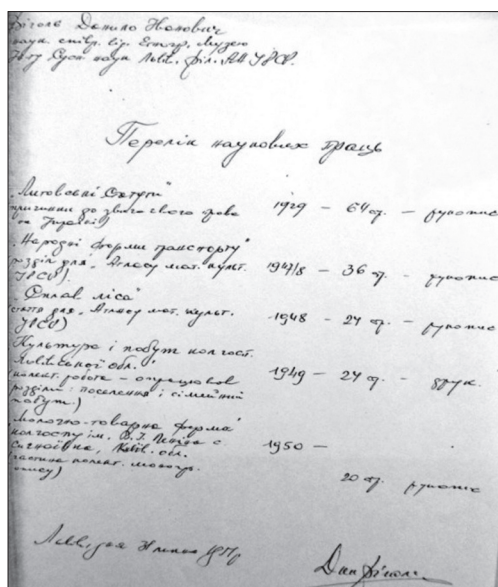 Фіголь Данило Іванович
наук. співр. від. Етногр. Музею
Ін-ту Сусп. наук Львів. філ. АН УРСР.
Перелік наукових праць
„Литовські Статути"
причинки до звичаєвого права
на Україні) 1929 – 64 ст. – рукопис
„Народні форми транспорту"
розділ для „Атласу мат. культ.
УРСР). 1947/8 – 36 ст. – рукопис
„Сплав ліса"
стаття для „Атласу мат. культ.
УРСР) 1948 – 24 ст. – рукопис
Культура і побут колгосп.
Львівської обл."
(колект. робота – опрацював
розділи: поселення і сімейний
побут.) 1949 – 24 ст. – друк.
„Молочно-товарна ферма"
колгоспу ім. В. І. Леніна с.
обл.
частина колект. моногр.
опису) 1950 –
20 ст. рукопис
Дан Фіголь